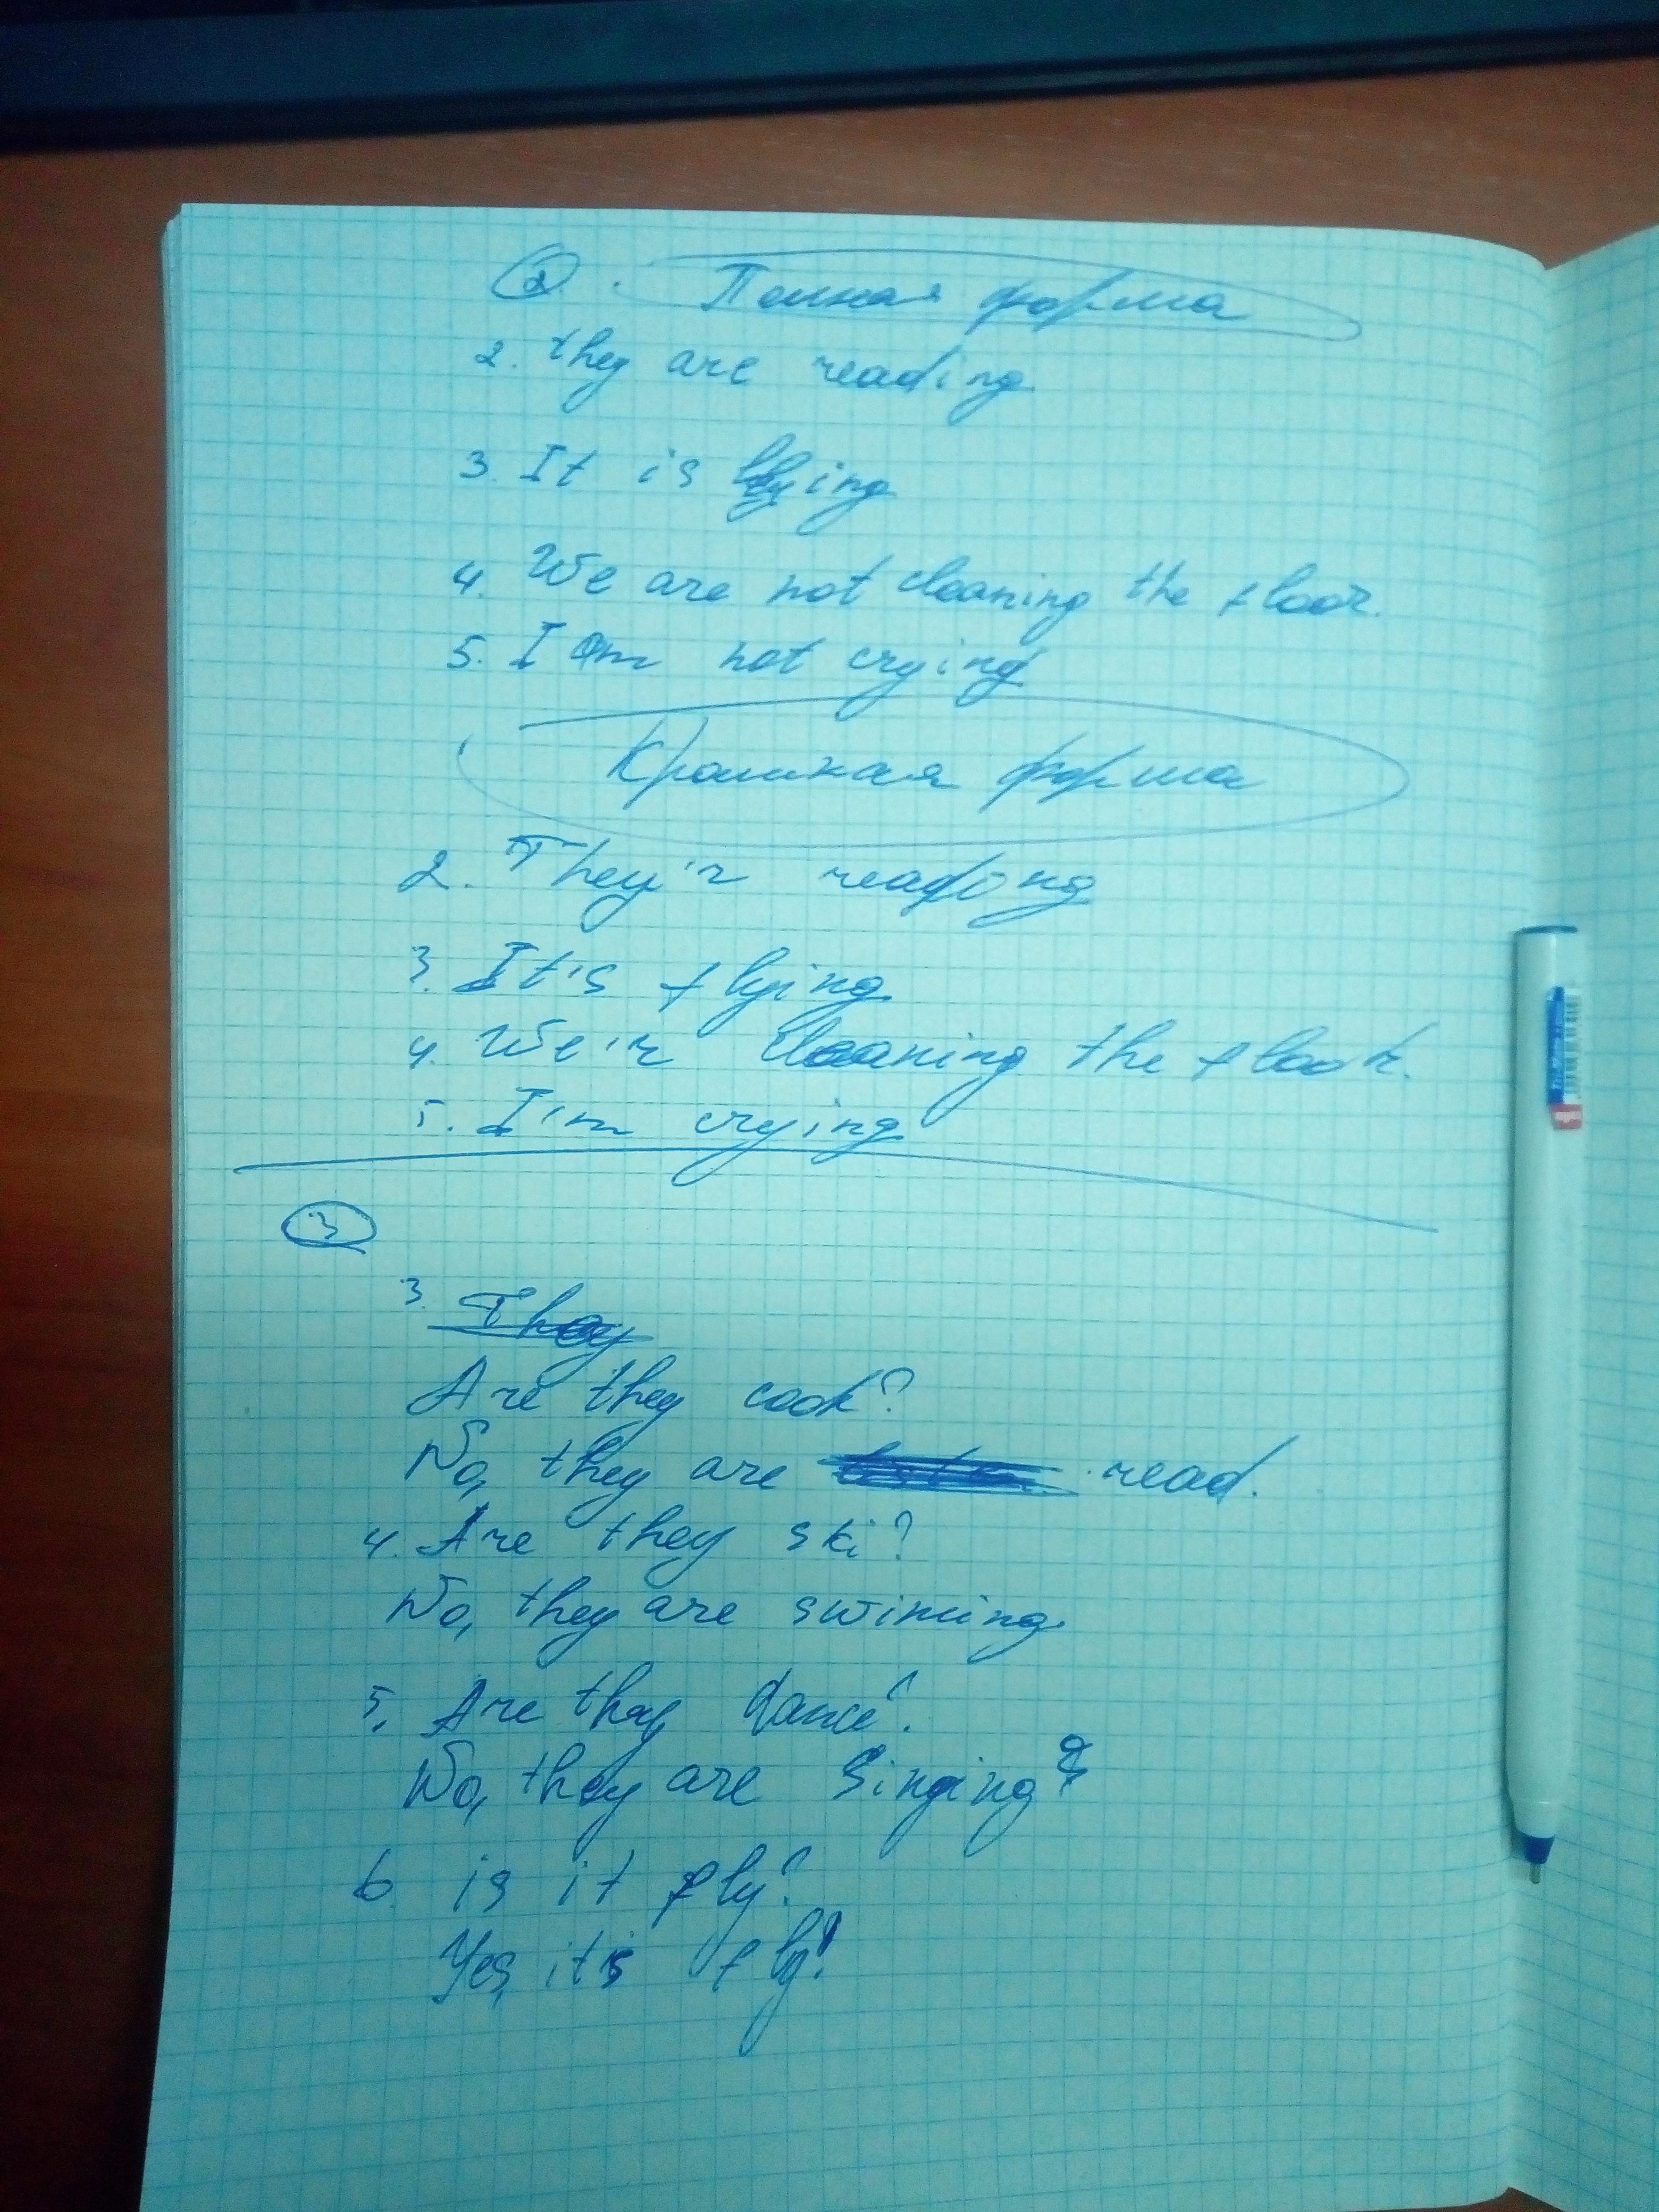 2. Полная форма
2. they are reading
3. It is flying
4. We are not cleaning the floor.
5. I am not crying
Краткая форма
2. They'r reading
3. It's flying
4. We'r cleaning the floor.
5. I'm crying
3
3. They
Are they cook?
No, they are read.
4. Are they ski?
No, they are swiming.
5. Are they dance?
No, they are singing
6 is it fly?
Yes, it's fly!